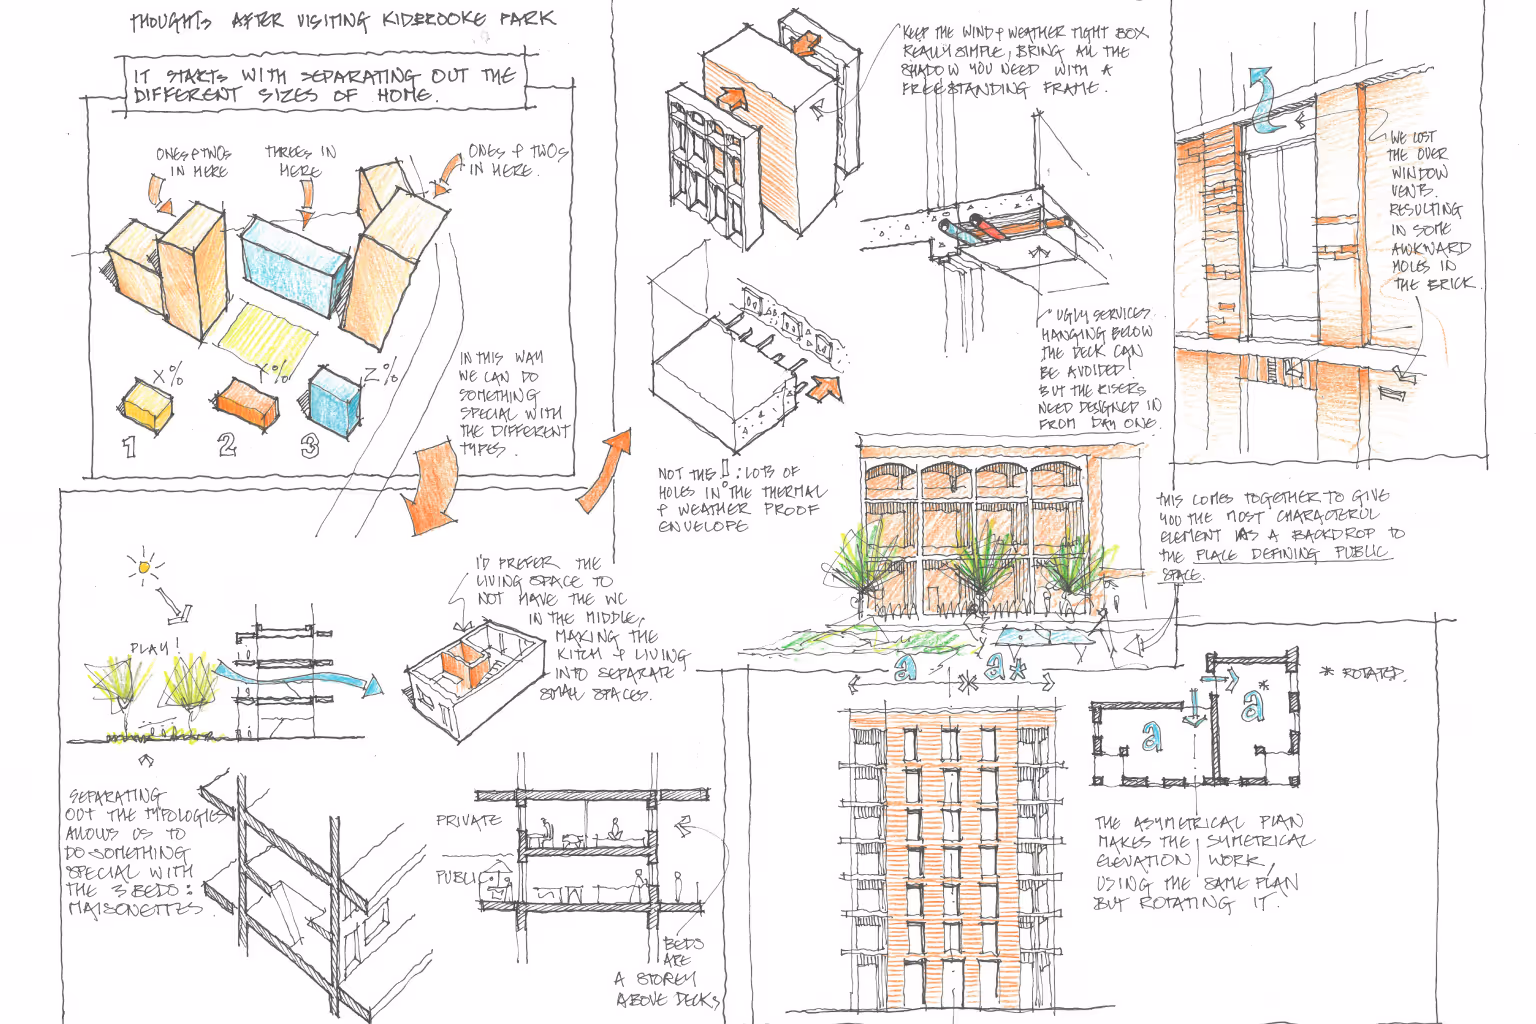 THOUGHTS AFTER VISITING KIDBROOKE PARK
IT STARTS WITH SEPARATING OUT THE
DIFFERENT SIZES OF HOME.
ONES & TWOS
IN HERE
THREES IN
HERE
ONES & TWOS
IN HERE.
X%
Y%
Z%
1
2
3
IN THIS WAY
WE CAN DO
SOMETHING
SPECIAL WITH
THE DIFFERENT
TYPES.
KEEP THE WIND & WEATHER TIGHT BOX
REALLY SIMPLE, BRING ALL THE
SHADOW YOU NEED WITH A
FREESTANDING FRAME.
UGLY SERVICES
HANGING BELOW
THE DECK CAN
BE AVOIDED!
BUT THE RISERS
NEED DESIGNED IN
FROM DAY ONE.
NOT THIS!: LOTS OF
HOLES IN THE THERMAL
& WEATHER PROOF
ENVELOPE
WE LOST
THE OVER
WINDOW
VENTS.
RESULTING
IN SOME
AWKWARD
HOLES IN
THE BRICK.
THIS COMES TOGETHER TO GIVE
YOU THE MOST CHARACTERFUL
ELEMENT AS A BACKDROP TO
THE PLACE DEFINING PUBLIC
SPACE.
PLAY!
I'D PREFER THE
LIVING SPACE TO
NOT HAVE THE WC
IN THE MIDDLE,
MAKING THE
KITCH & LIVING
INTO SEPARATE
SMALL SPACES.
SEPARATING
OUT THE TYPOLOGIES
ALLOWS US TO
DO SOMETHING
SPECIAL WITH
THE 3 BEDS:
MAISONETTES.
PRIVATE
PUBLIC
BEDS
ARE
A STOREY
ABOVE DECKS
a
a*
a
a*
* ROTATED.
THE ASYMETRICAL PLAN
MAKES THE SYMETRICAL
ELEVATION WORK,
USING THE SAME PLAN
BUT ROTATING IT.